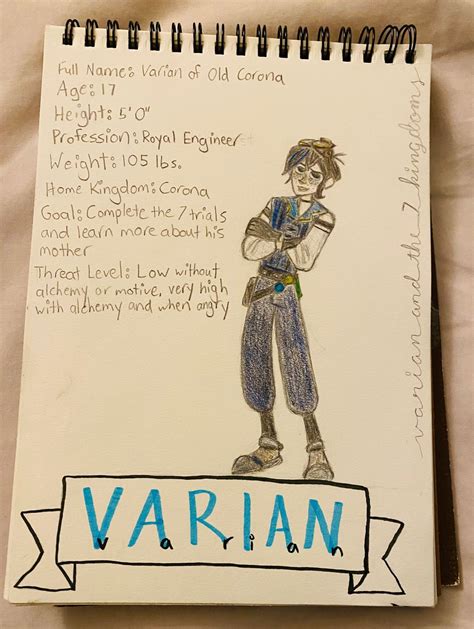 Full Name: Varian of Old Corona
Age: 17
Height: 5' 0"
Profession: Royal Engineer
Weight: 105 lbs.
Home Kingdom: Corona
Goal: Complete the 7 trials
and learn more about his
mother
Threat Level: Low without
alchemy or motive, very high
with alchemy and when angry
varian and the 7 kingdoms
VARIAN
varian